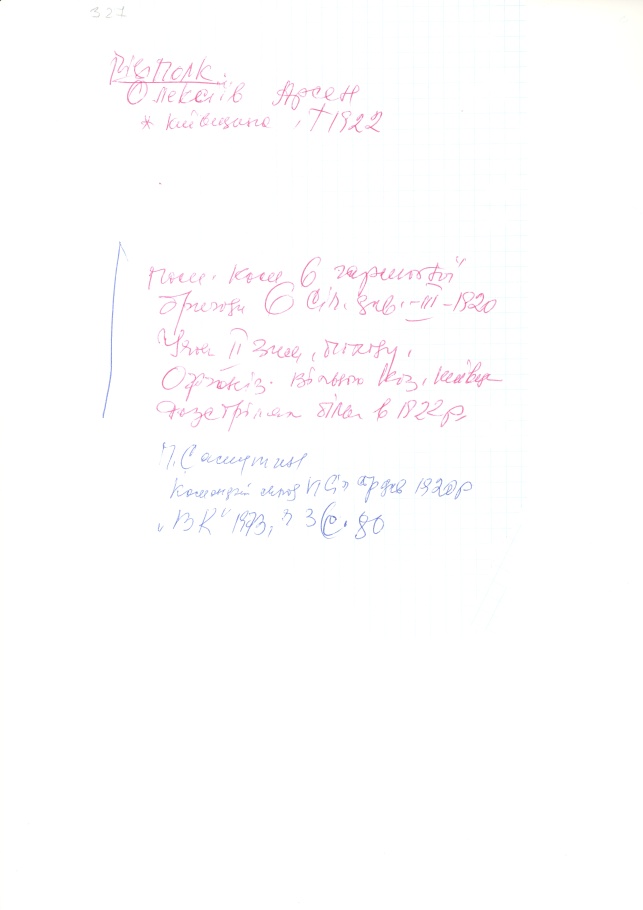 327
ПідПолк.
Олексіїв Арсен
* Київщина, †1922
Пом. Ком 6 гарматої
бригади 6 Січ. див. -III-1920
Учн II Зим. походу.
Організ. вільного Коз. Київщ
розстрілян біля в 1922 р.
П. Самутин
Командний склад 1920 р
"ВК" 1973, ч 3 с. 80